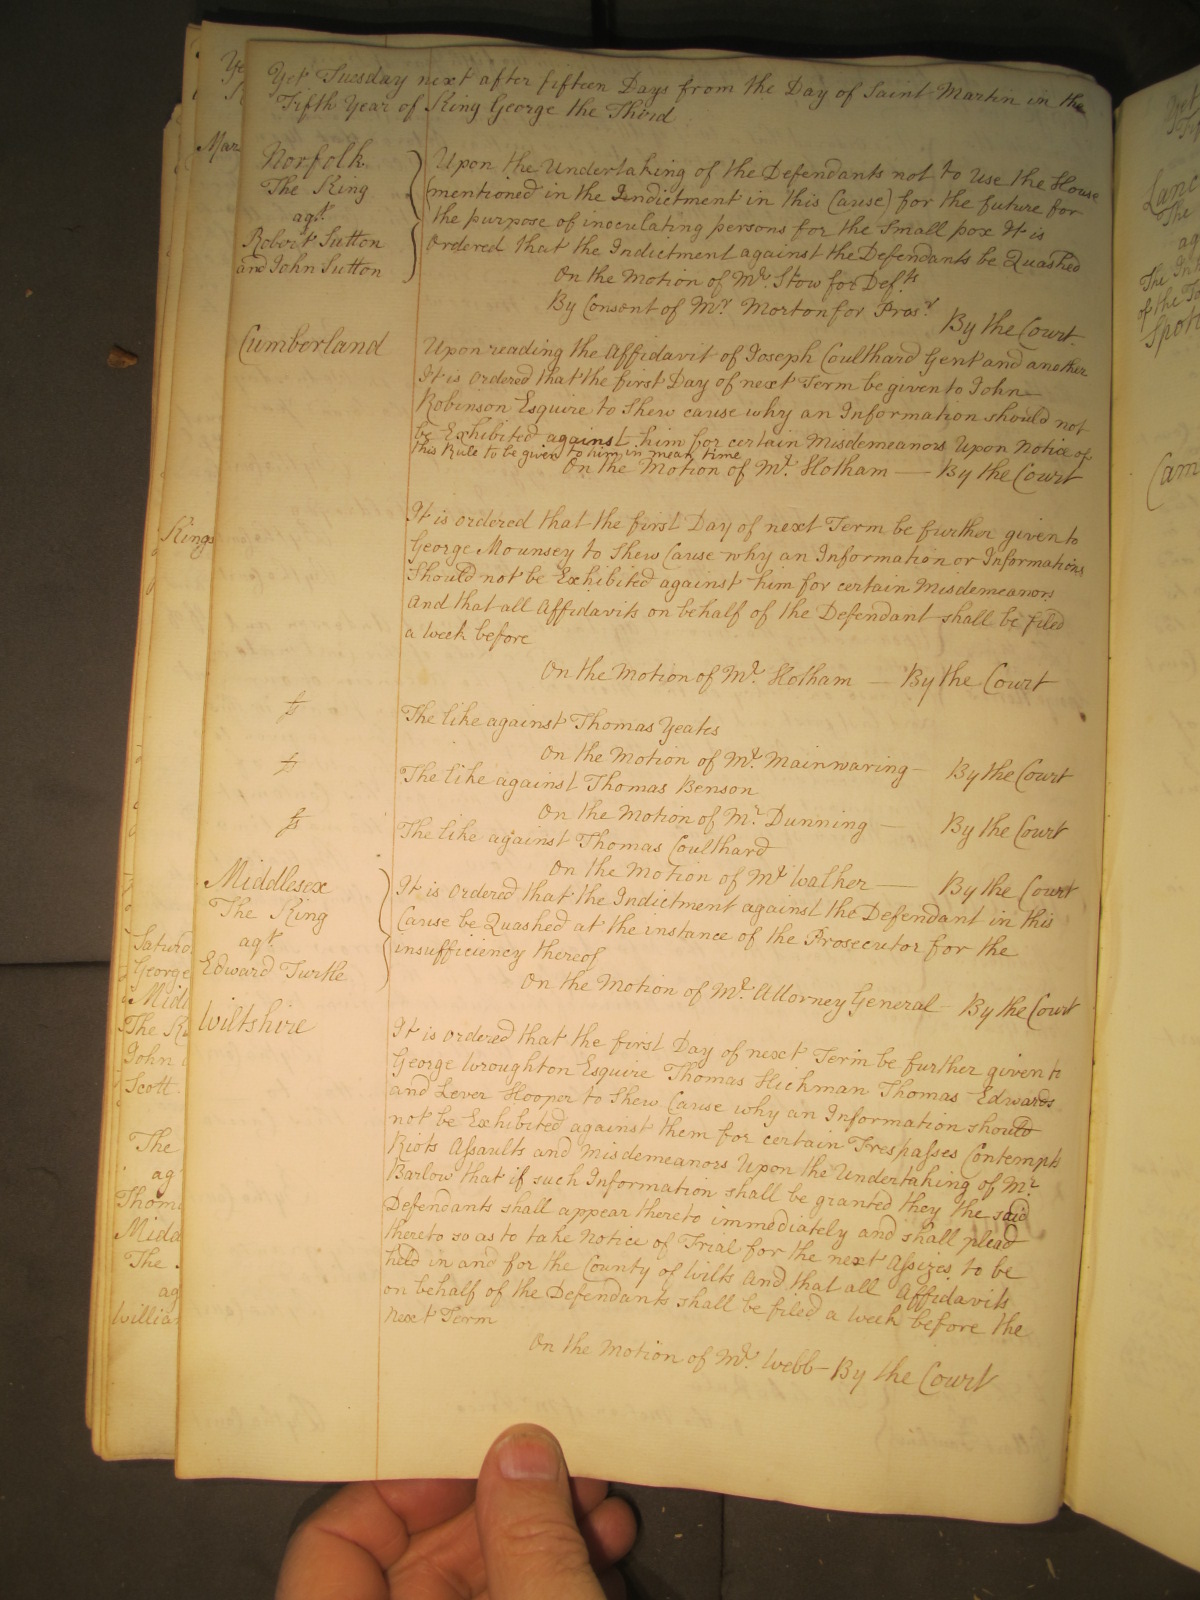 Yet Tuesday next after fifteen Days from the Day of Saint Martin in the
Fifth Year of King George the Third
Norfolk
The King
agt.
Robert Sutton
and John Sutton
Upon the Undertaking of the Defendants not to use the House
(mentioned in the Indictment in this Cause) for the future for
the purpose of inoculating persons for the small pox It is
Ordered that the Indictment against the Defendants be Quashed
On the Motion of Mr. Stow for Defts
By Consent of Mr. Morton for Prosr
By the Court
Cumberland
Upon reading the Affidavit of Joseph Coulthard Gent and another
It is ordered that the first Day of next Term be given to John
Robinson Esquire to shew cause why an Information should not
be Exhibited against him for certain Misdemeanors Upon Notice of
this Rule to be given to him in mean time
On the Motion of Mr. Hotham — By the Court
It is ordered that the first Day of next Term be further given to
George Mounsey to shew Cause why an Information or Informations
Should not be Exhibited against him for certain Misdemeanors
And that all Affidavits on behalf of the Defendant shall be filed
a week before
On the Motion of Mr. Hotham — By the Court
The like against Thomas Yeates
On the Motion of Mr. Mainwaring — By the Court
The like against Thomas Benson
On the Motion of Mr. Dunning — By the Court
The like against Thomas Coulthard
On the Motion of Mr Walker — By the Court
Middlesex
The King
agt.
Edward Turtle
It is ordered that the Indictment against the Defendant in this
Cause be Quashed at the instance of the Prosecutor for the
insufficiency thereof
On the Motion of Mr. Attorney General — By the Court
Wiltshire
It is ordered that the first Day of next Term be further given to
George Wroughton Esquire Thomas Hickman Thomas Edwards
and Lever Hooper to shew Cause why an Information should
not be Exhibited against them for certain Trespasses Contempts
Riots Assaults and Misdemeanors Upon the Undertaking of Mr.
Barlow that if such Information shall be granted they the said
Defendants shall appear thereto immediately and shall plead
thereto so as to take Notice of Trial for the next Assizes to be
held in and for the County of Wilts And that all Affidavits
on behalf of the Defendants shall be filed a week before the
Next Term
On the Motion of Mr. Webb — By the Court